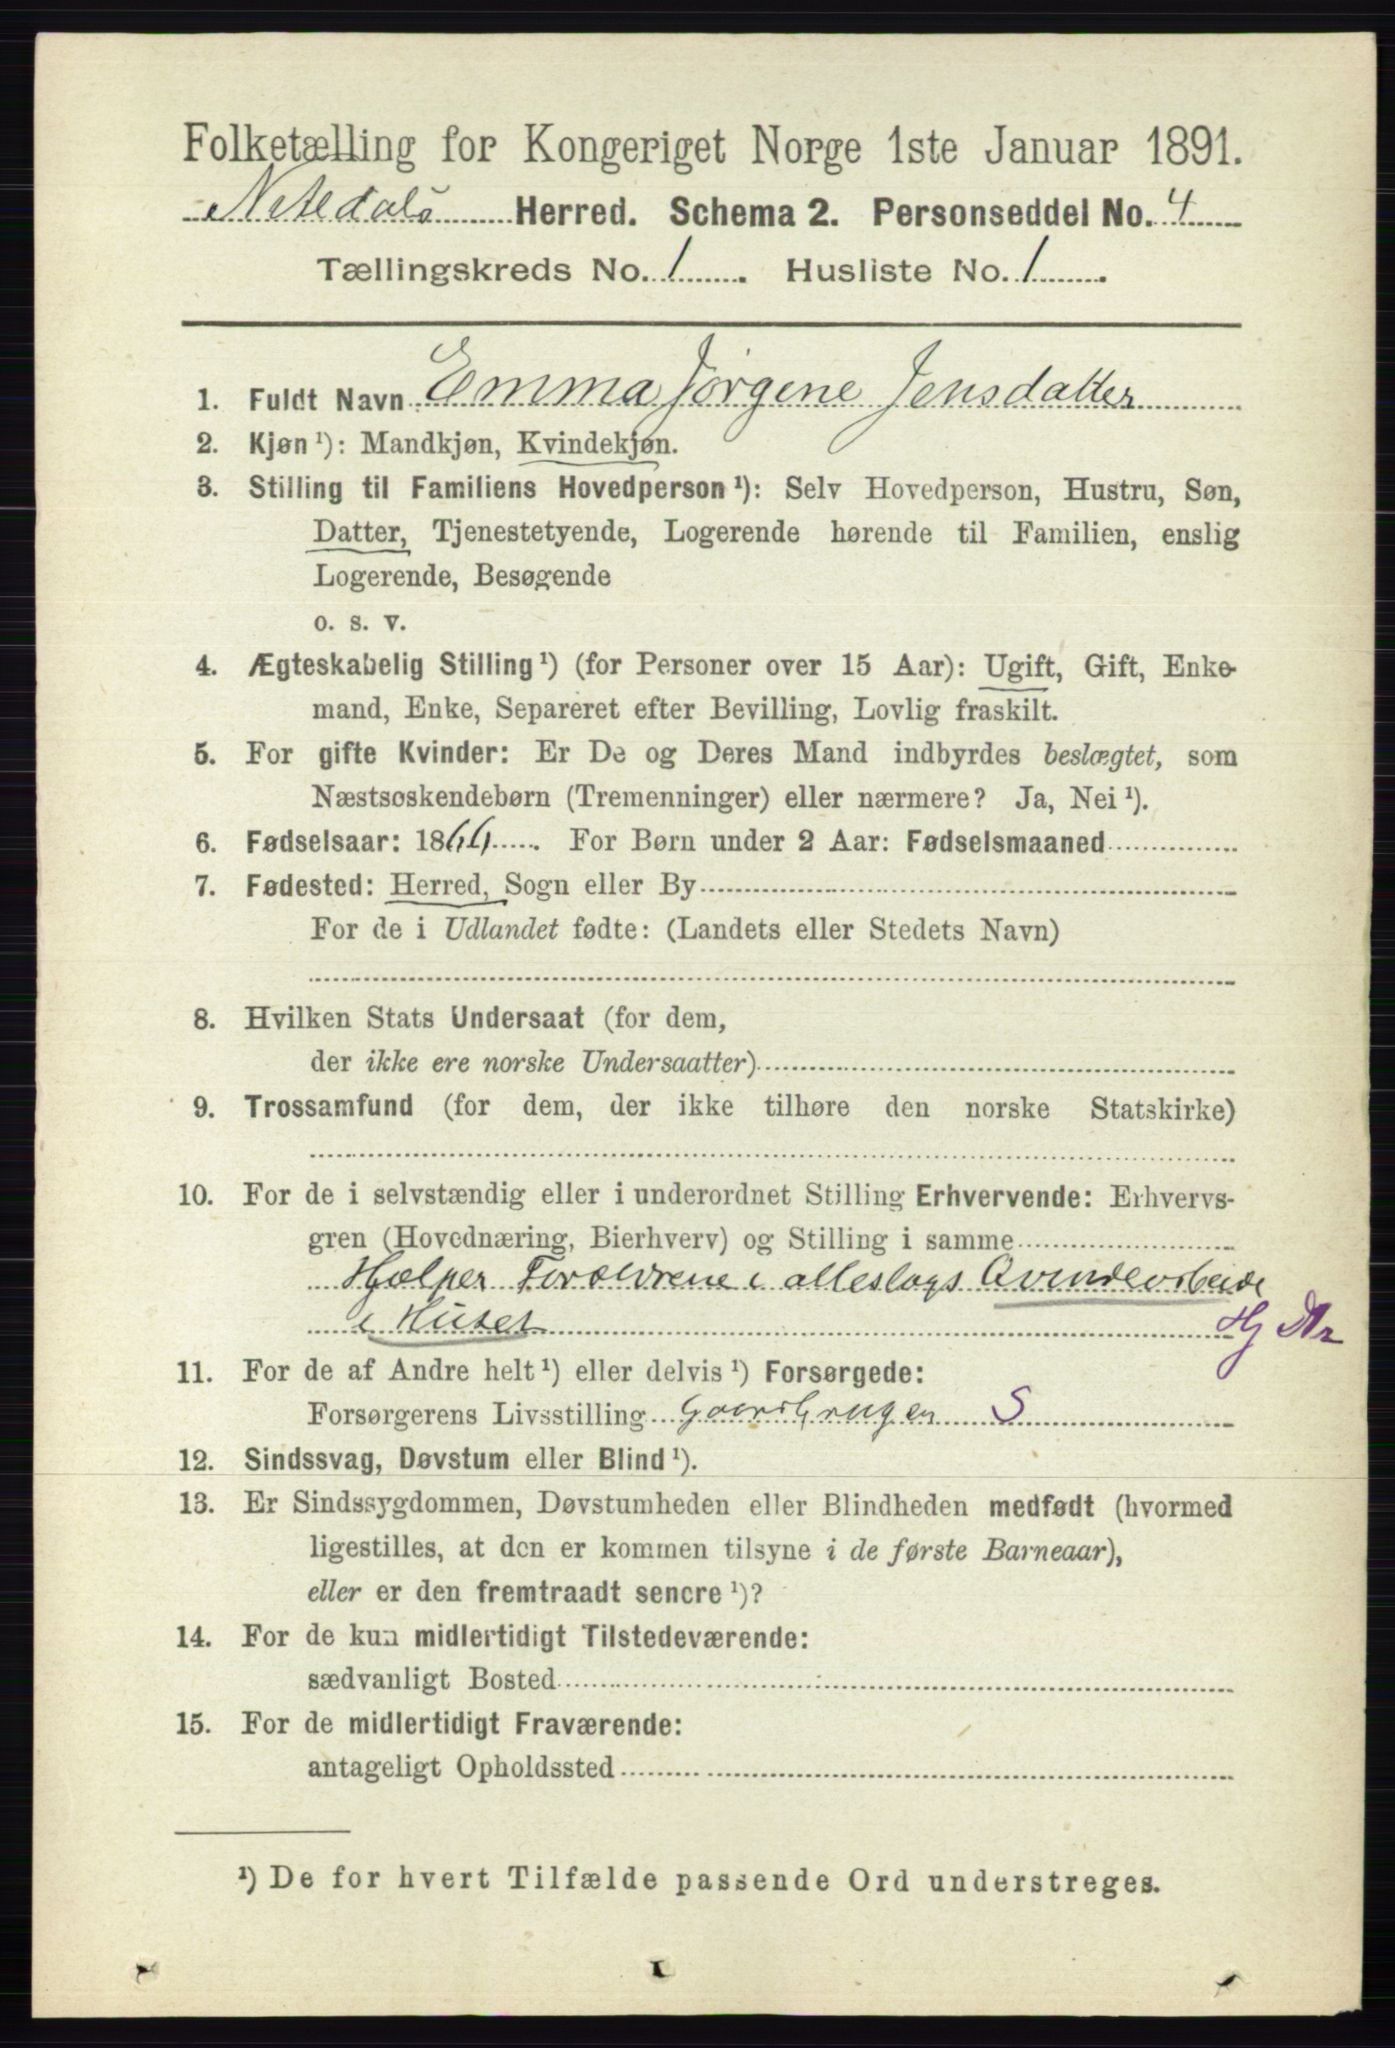 Folketælling for Kongeriget Norge 1ste Januar 1891.
Nitedals Herred. Schema 2. Personseddel No. 4
Tællingskreds No. 1. Husliste No. 1.
1. Fuldt Navn Emma Jørgene Jensdatter
2. Kjøn ¹): Mandkjøn, Kvindekjøn.
3. Stilling til Familiens Hovedperson ¹): Selv Hovedperson, Hustru, Søn,
Datter, Tjenestetyende, Logerende hørende til Familien, enslig
Logerende, Besøgende
o. s. v.
4. Ægteskabelig Stilling ¹) (for Personer over 15 Aar): Ugift, Gift, Enke-
mand, Enke, Separeret efter Bevilling, Lovlig fraskilt.
5. For gifte Kvinder: Er De og Deres Mand indbyrdes beslægtet, som
Næstsøskendebørn (Tremenninger) eller nærmere? Ja, Nei ¹).
6. Fødselsaar: 1864. For Børn under 2 Aar: Fødselsmaaned
7. Fødested: Herred, Sogn eller By
For de i Udlandet fødte: (Landets eller Stedets Navn)
8. Hvilken Stats Undersaat (for dem,
der ikke ere norske Undersaatter)
9. Trossamfund (for dem, der ikke tilhøre den norske Statskirke)
10. For de i selvstændig eller i underordnet Stilling Erhvervende: Erhvervs-
gren (Hovednæring, Bierhverv) og Stilling i samme
Hjælper Forældrene i alleslags Qvindearbeide
i Huset Hj
11. For de af Andre helt ¹) eller delvis ¹) Forsørgede:
Forsørgerens Livsstilling Gaardbruger S
12. Sindssvag, Døvstum eller Blind ¹).
13. Er Sindssygdommen, Døvstumheden eller Blindheden medfødt (hvormed
ligestilles, at den er kommen tilsyne i de første Barneaar),
eller er den fremtraadt senere ¹)?
14. For de kun midlertidigt Tilstedeværende:
sædvanligt Bosted
15. For de midlertidigt Fraværende:
antageligt Opholdssted
¹) De for hvert Tilfælde passende Ord understreges.